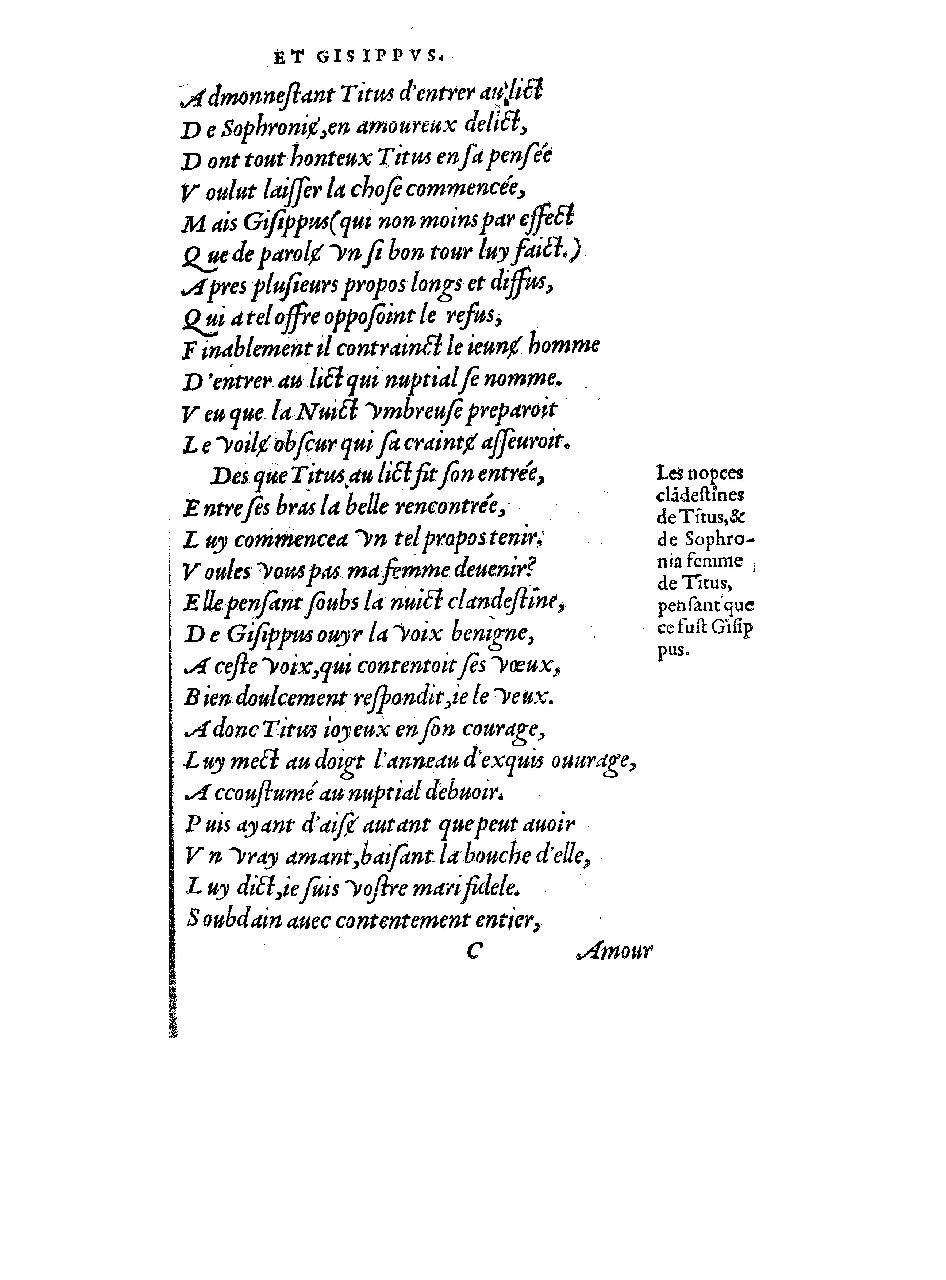 ET GISIPPVS.
Admonneſtant Titus d'entrer au lict
De Sophronię,en amoureux delict,
Dont tout honteux Titus en ſa penſée
Voulut laiſſer la choſe commencée,
Mais Giſippus(qui non moins par effect
Que de parolę vn ſi bon tour luy faict.)
Apres pluſieurs propos longs et diffus,
Qui a tel offre oppoſoint le refus,
Finablement il contrainct le ieunę homme
D'entrer au lict qui nuptial ſe nomme.
Veu que la Nuict vmbreuſe preparoit
Le voilę obſcur qui ſa craintę aſſeuroit.
Des que Titus au lict fit ſon entrée,
Entre ſes bras la belle rencontrée,
Luy commencea vn tel propos tenir,
Voules vous pas ma femme deuenir?
Elle penſant ſoubs la nuict clandeſtine,
De Giſippus ouyr la voix benigne,
A ceſte voix,qui contentoit ſes vœux,
Bien doulcement reſpondit,ie le veux.
Adonc Titus ioyeux en ſon courage,
Luy mect au doigt l'anneau d'exquis ouurage,
Accouſtumé au nuptial debuoir.
Puis ayant d'aiſę autant que peut auoir
Vn vray amant,baiſant la bouche d'elle,
Luy dict,ie ſuis voſtre mari fidele.
Soubdain auec contentement entier,
C Amour
Les nopces
clãdeſtines
de Titus,&
de Sophro-
nia femme
de Titus,
penſant que
ce fuſt Giſip
pus.